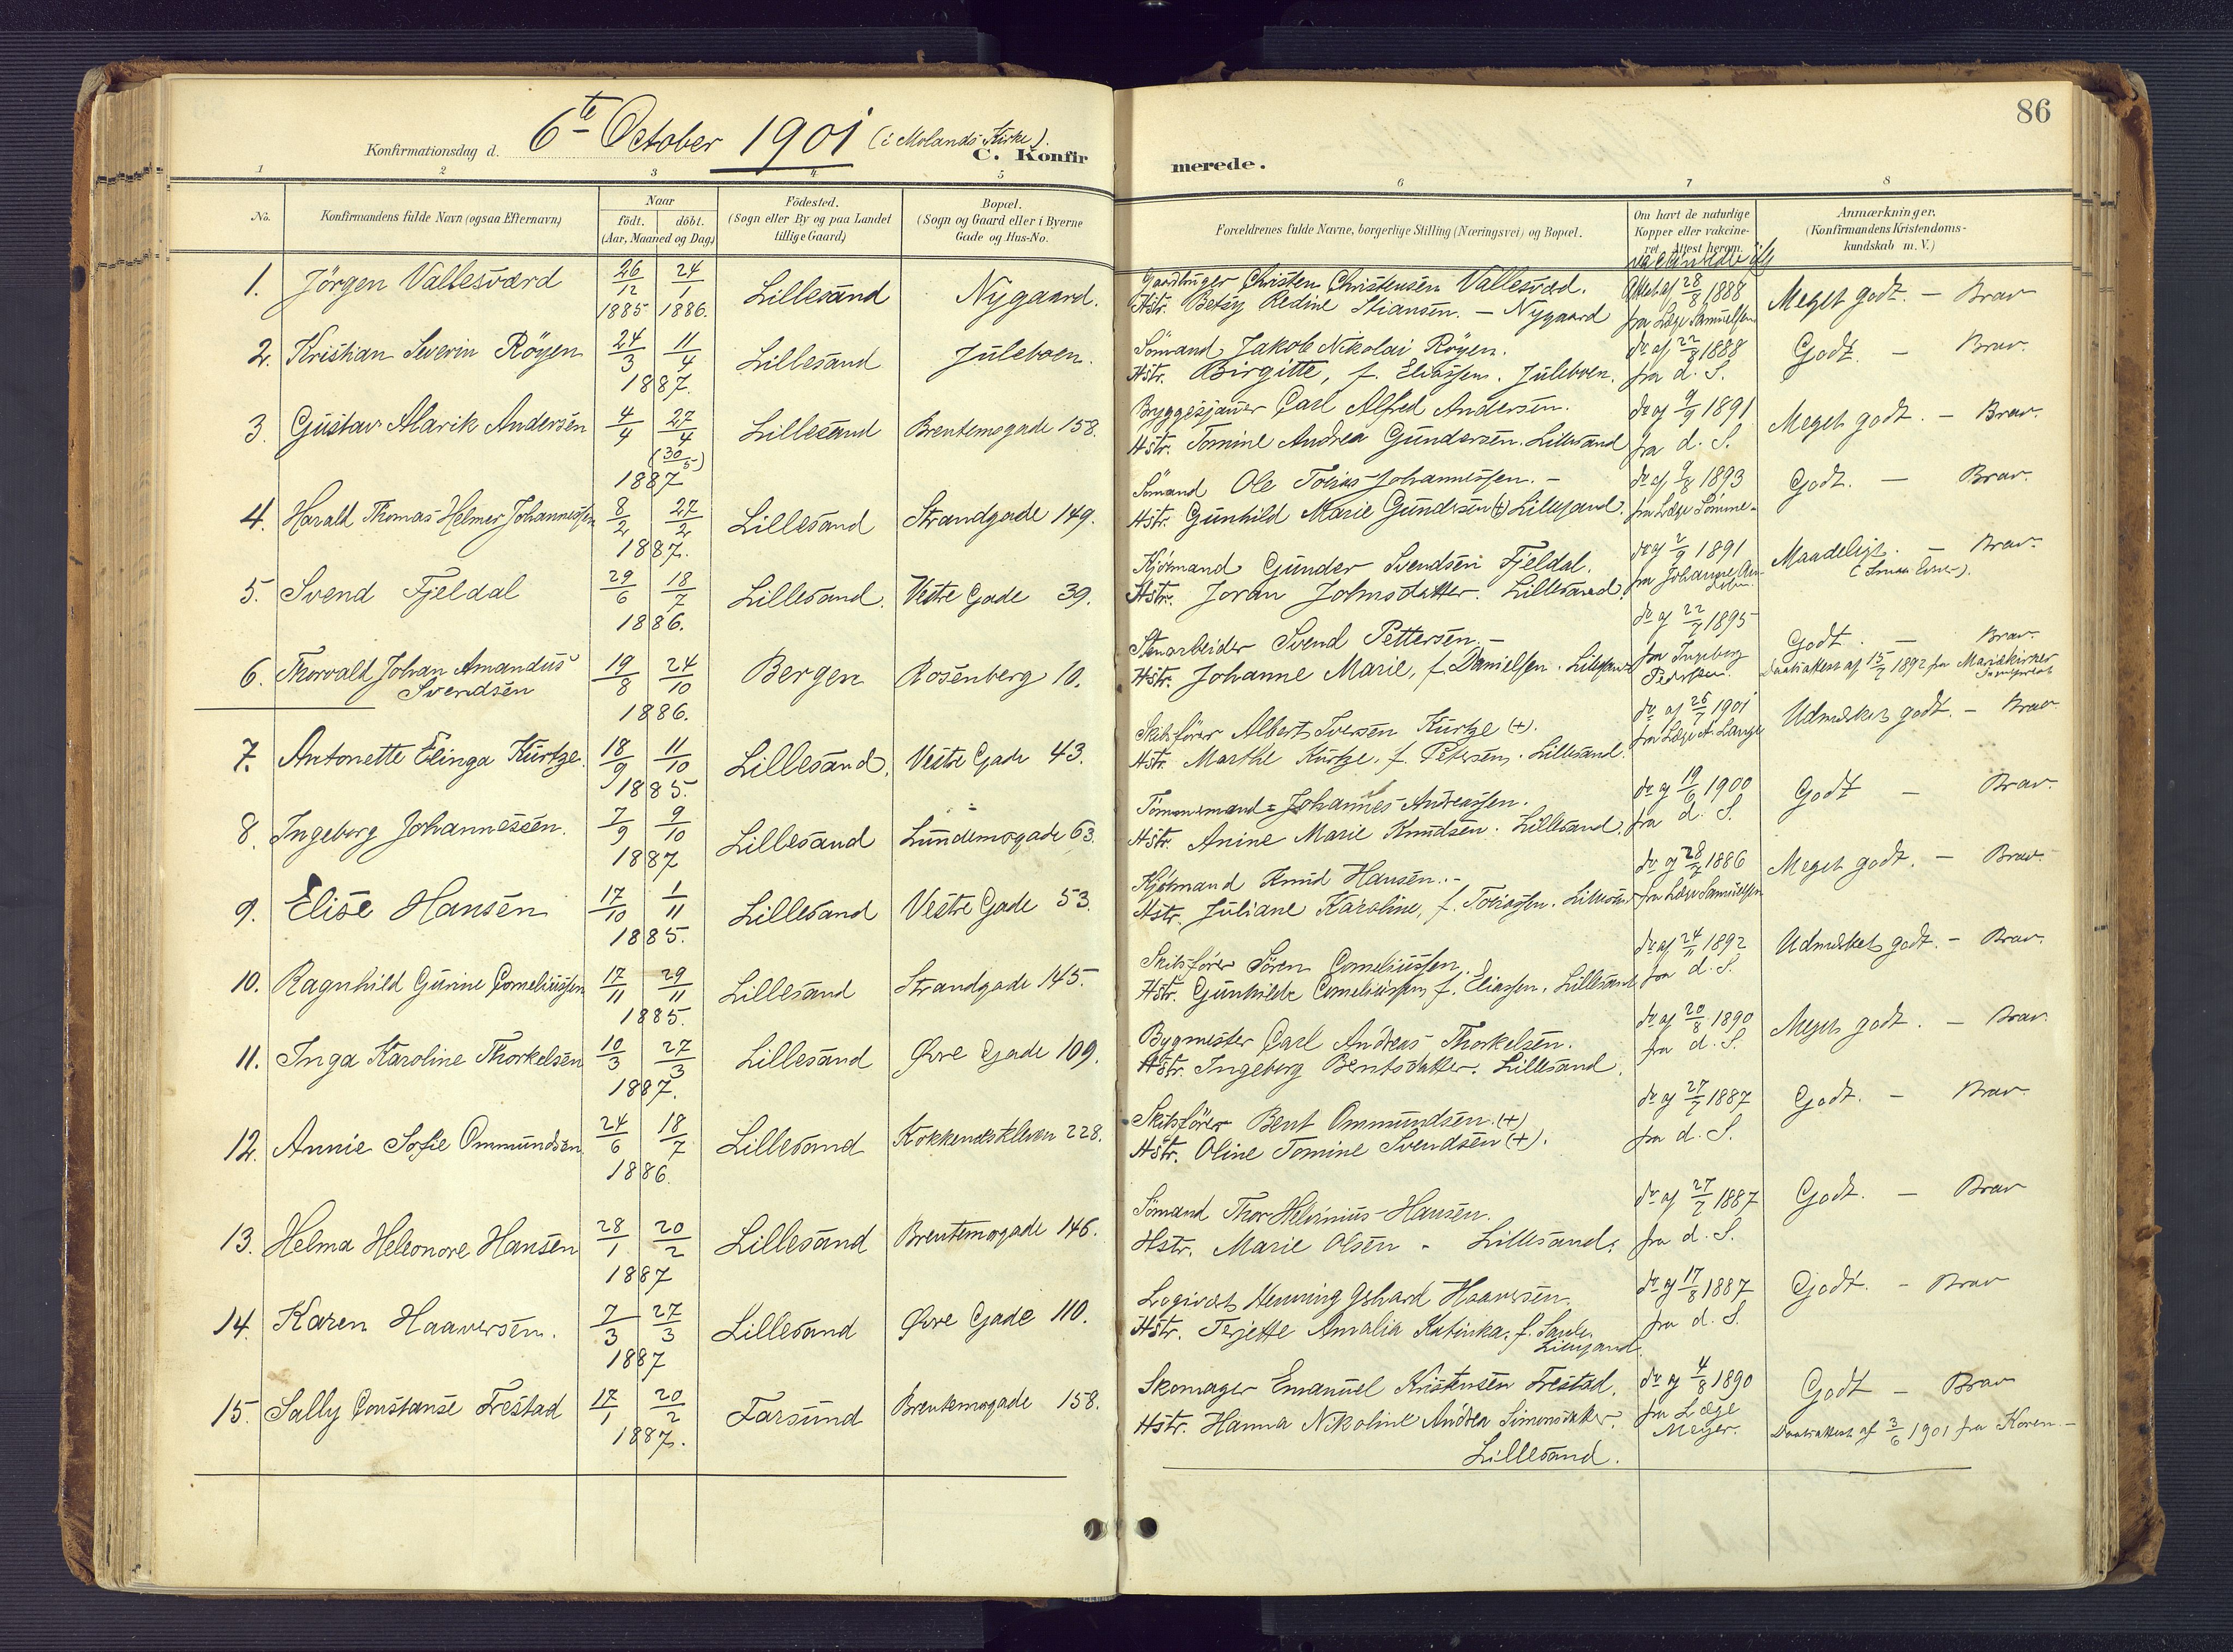 86
Konfirmationsdag d. 6te October 1901 (i Molands Kirke).
C. Konfirmerede.
1 2 3 4 5 6 7 8
No.
Konfirmandens fulde Navn (ogsaa Efternavn)
Naar
födt. döbt.
(Aar, Maaned og Dag.)
Födested.
(Sogn eller By og paa Landet
tillige Gaard)
Bopæl.
(Sogn og Gaard eller i Byerne
Gade og Hus-No.
Forældrenes fulde Navne, borgerlige Stilling (Næringsvei) og Bopæl.
Om havt de naturlige
Kopper eller vakcine-
ret. Attest herom.
Anmærkninger.
(Konfirmandens Kristendoms-
kundskab m. V.)
1. Jörgen Vallesværd 26/12 1885 24/1 1886. Lillesand Nygaard.
Gaardbruger Christen Christensen Vallesværd.
Hstr. Betzy Redine Stiansen. – Nygaard
Attest af 28/8 1888
fra Læge Samuelsen
Meget godt. – Brav
2. Kristian Severin Röyen 24/3 11/4 1887. Lillesand Juleboen.
Sömand Jakob Nikolai Röyen.
Hstr. Birgitte, f. Eliassen. Juleboen.
do af 22/8 1888
fra d. S.
Godt. – Brav
3. Gustav Alarik Andersen 4/4 27/4 (30/5) 1887 Lillesand Brentemogade 158.
Bryggesjauer Carl Alfred Andersen.
Hstr. Tomine Andrea Gundersen. Lillesand
do af 9/9 1891
fra d. S.
Meget godt. – Brav.
4. Harald Thomas Helmer Johannessen 8/2 27/2 1887. Lillesand Strandgade 149.
Sömand Ole Tobias Johannessen. –
Hstr. Gunhild Marie Gundersen (+) Lillesand.
do af 9/8 1893
fra Læge Sömme.
Godt. – Brav.
5. Svend Fjeldal 29/6 18/7 1886. Lillesand. Vestre Gade 39.
Kjöbmand Gunder Svendsen Fjeldal.
Hstr. Joran Johnsdatter. Lillesand.
do af 2/9 1891
fra Johanne
Maadeligt. – Brav.
6. Thorvald Johan Amandus
Svendsen 19/8 24/10 1886. Bergen Rosenberg 10.
Stenarbeider Svend Pettersen. –
Hstr. Johanne Marie, f. Danielsen. Lillesand
do af 22/7 1895
fra Ingeborg
Pedersen.
Godt. – Brav.
Daabsattest af 15/7 1892 fra Mariakirken
7. Antonette Elinga Kurtze. 18/9 11/10 1885. Lillesand. Vestre Gade 43.
Skibsförer Albert Iversen Kurtze (+).
Hstr. Marthe Kurtze, f. Petersen. Lillesand.
do af 26/7 1901
fra Læge A. Lange
Udmerket godt. – Brav
8. Ingeborg Johannessen. 7/9 9/10 1887 Lillesand Lundemogade 63.
Tömmermand Johannes Andreassen.
Hstr. Anine Marie Knudsen. Lillesand.
do af 19/6 1900
fra d. S.
Godt – Brav.
9. Elise Hansen 17/10 1/11 1885. Lillesand Vestre Gade 53.
Kjöbmand Knud Hansen. –
Hstr. Juliane Karoline, f. Tobiassen. Lillesand
do af 28/7 1886
fra Læge Samuelsen
Meget godt. – Brav.
10. Ragnhild Gurine Corneliussen 17/11 29/11 1885. Lillesand Strandgade 145.
Skibsförer Sören Corneliussen.
Hstr. Gunhilde Corneliussen, f. Eliassen. Lillesand
do af 24/11 1892
fra d. S.
Udmerket godt. – Brav.
11. Inga Karoline Thorkelsen 10/3 27/3 1887. Lillesand Övre Gade 109.
Bygmester Carl Andreas Thorkelsen.
Hstr. Ingeborg Bentsdatter. Lillesand.
do af 20/8 1890
fra d. S.
Meget godt. – Brav.
12. Annie Sofie Ommundsen 24/6 18/7 1886. Lillesand Kokkenæskleven 228.
Skibsförer Bent Ommundsen (+)
Hstr. Oline Tomine Svendsen (+).
do af 27/7 1887
fra d. S.
Godt. – Brav
13. Helma Heleonore Hansen 28/1 20/2 1887 Lillesand Brentemogade 146.
Sömand Thor Helvinius Hansen.
Hstr. Marie Olsen – Lillesand.
do af 27/7 1887
fra d. S.
Godt. – Brav
14. Karen Haaversen. 7/3 27/3 1887 Lillesand Övre Gade 110.
Logivært Henning Gehard Haaversen.
Hstr. Terjette Amalia Katinka, f.
Lillesand.
do af 17/8 1887
fra d. S.
Godt. – Brav
15. Sally Constanse Frestad 17/1 20/2 1887. Farsund Brentemogade 158.
Skomager Emanuel Kristensen Frestad.
Hstr. Hanna Nikoline Andrea Simonsdatter.
Lillesand.
do af 4/8 1890
fra Læge
Meyer.
Godt – Brav
Daabsattest af 3/6 1901 fra